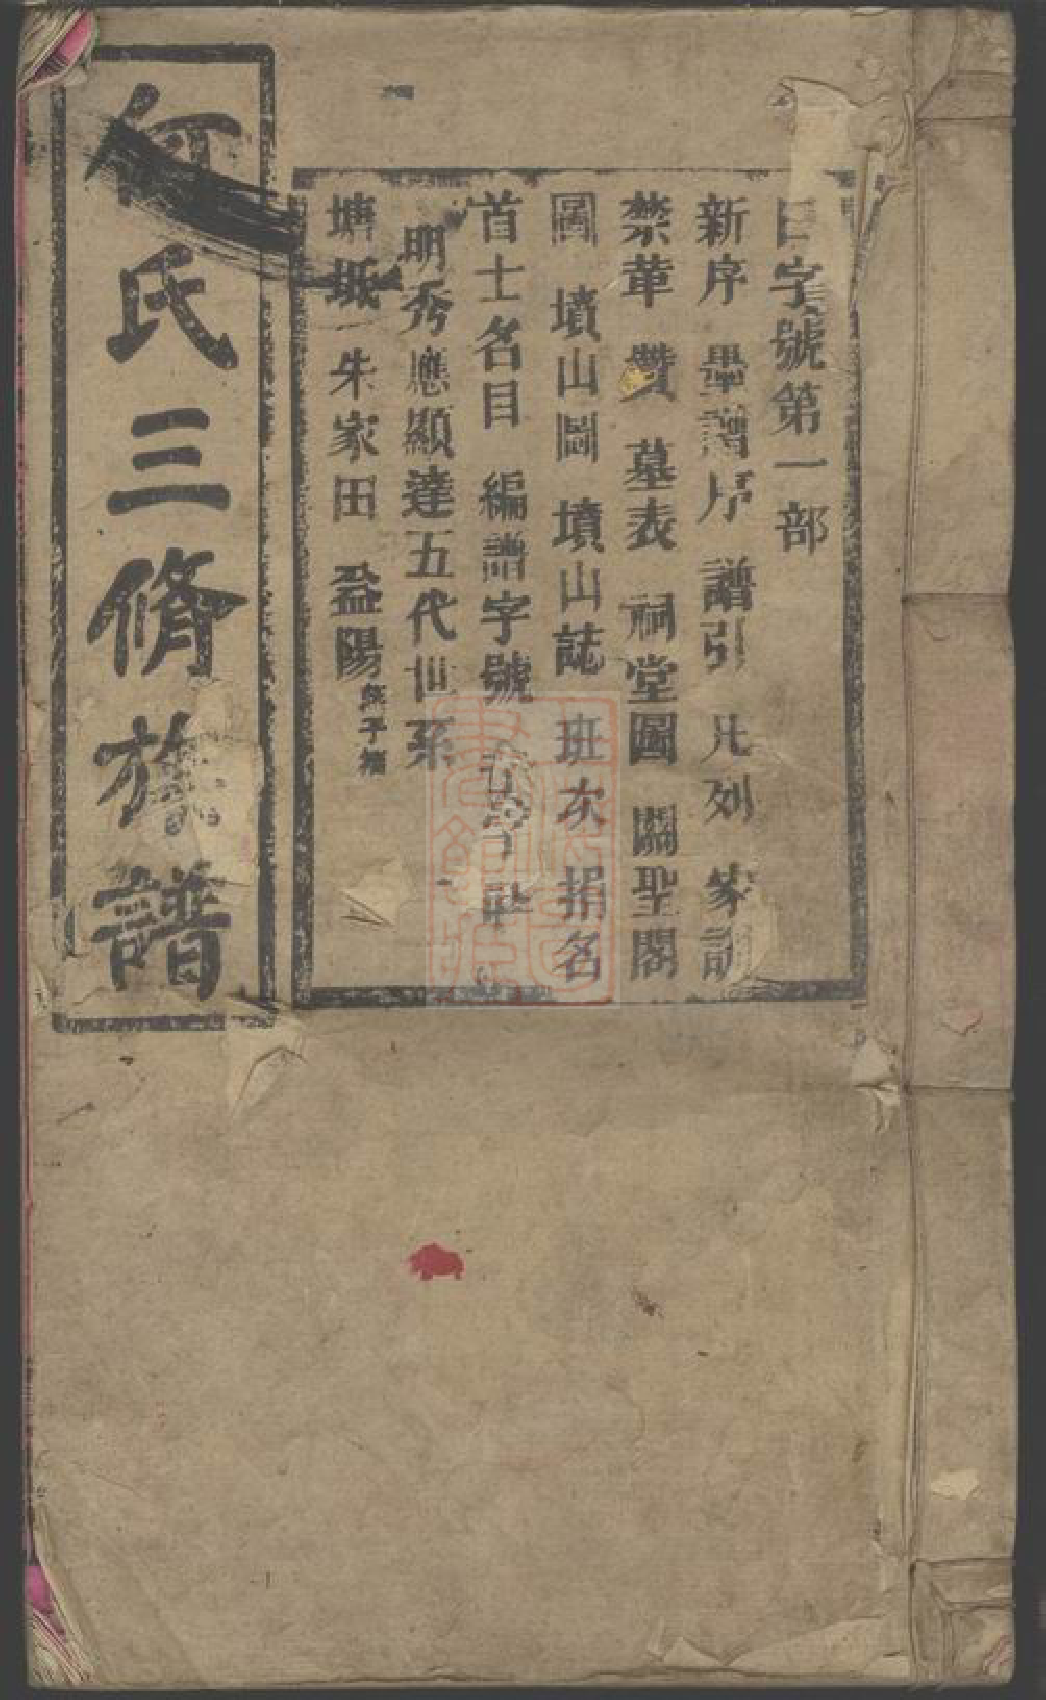 字號第一部
新序 墨譜序 譜引 凡列 家訓
禁葷 贊 墓表 祠堂圖 關聖閣
圖 墳山圖 墳山誌 班次 捐名
首士名目 編譜字號
明秀應顯達五代世系
塘坻 朱家田 益陽
何氏三脩族譜